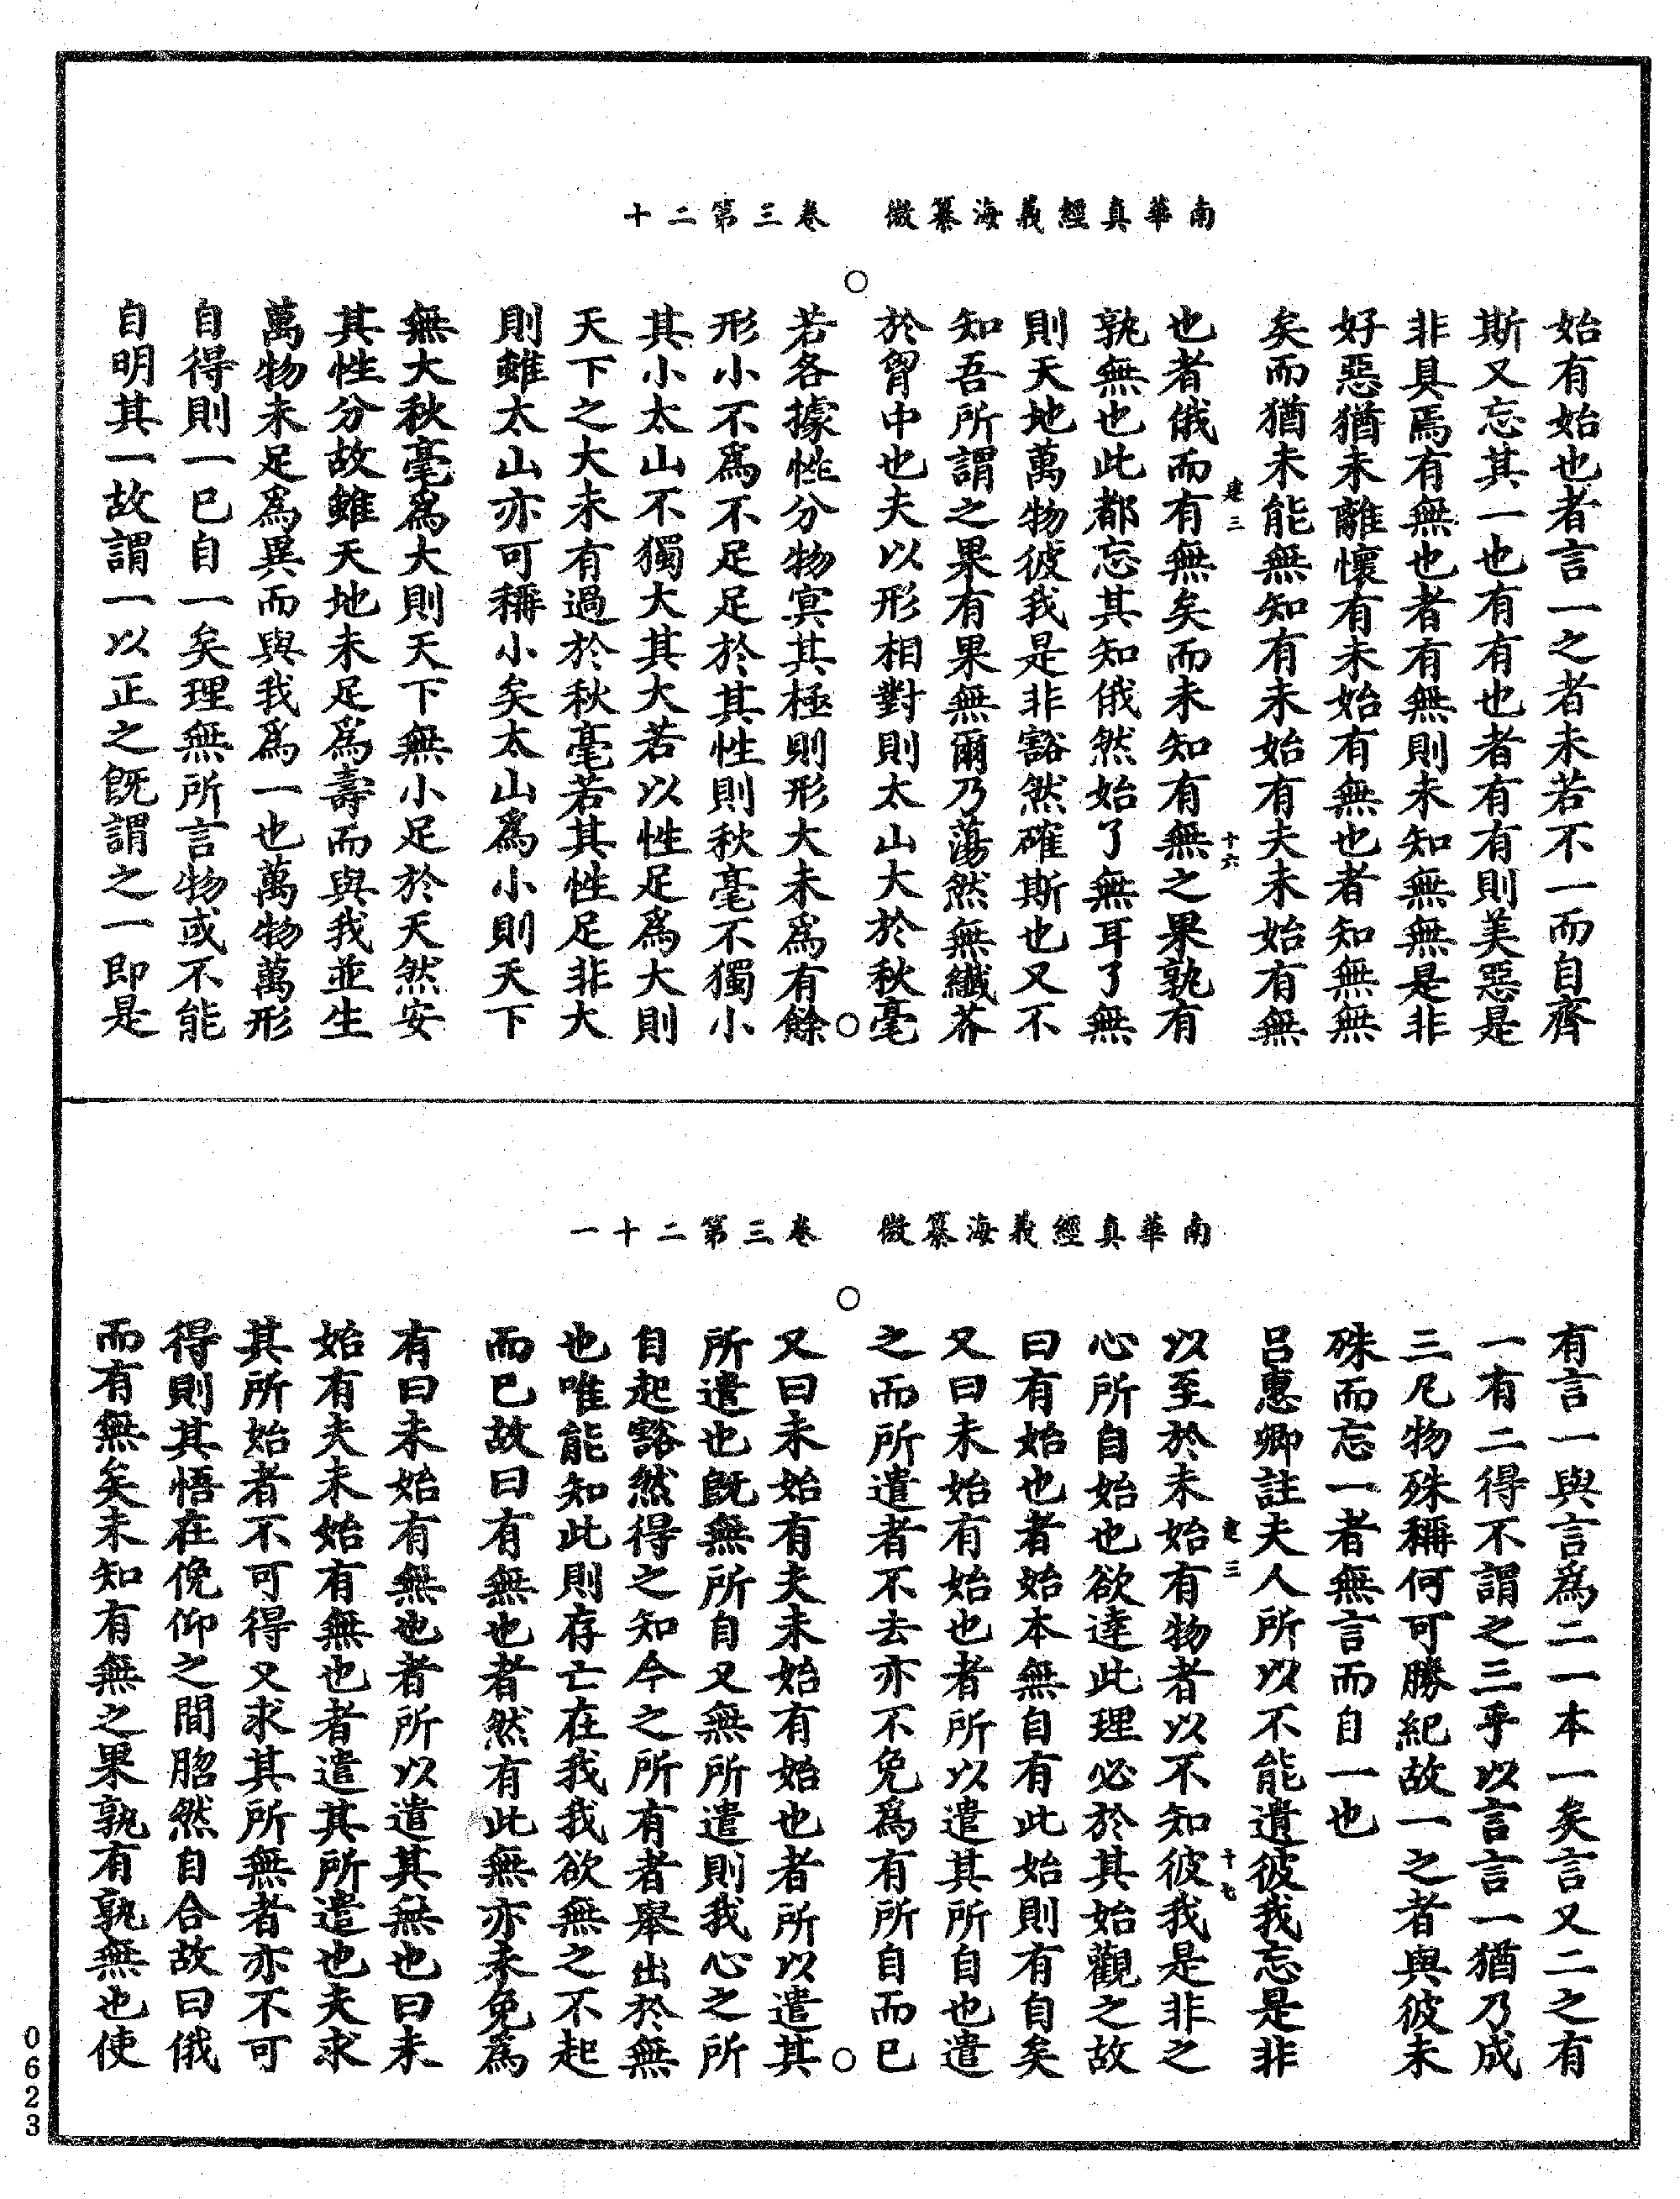 南華真經義海纂微　卷三第二十
始有始也者言一之者未若不一而自齊
斯又忘其一也有有也者有有則美惡是
非具焉有無也者有無則未知無無是非
好惡猶未離懷有未始有無也者知無無
矣而猶未能無知有未始有夫未始有無
建三　十六
也者俄而有無矣而未知有無之果孰有
孰無也此都忘其知俄然始了無耳了無
則天地萬物彼我是非豁然確斯也又不
知吾所謂之果有果無爾乃蕩然無纖芥
於胷中也夫以形相對則太山大於秋毫
若各據性分物冥其極則形大未爲有餘
形小不爲不足足於其性則秋毫不獨小
其小太山不獨大其大若以性足爲大則
天下之大未有過於秋毫若其性足非大
則雖太山亦可稱小矣太山爲小則天下
無大秋毫爲大則天下無小足於天然安
其性分故雖天地未足爲壽而與我並生
萬物未足爲異而與我爲一也萬物萬形
自得則一已自一矣理無所言物或不能
自明其一故謂一以正之旣謂之一即是
南華真經義海纂微　卷三第二十一
有言一與言爲二一本一矣言又二之有
一有二得不謂之三乎以言言一猶乃成
三凡物殊稱何可勝紀故一之者與彼未
殊而忘一者無言而自一也
呂惠卿註夫人所以不能遺彼我忘是非
建三　十七
以至於未始有物者以不知彼我是非之
心所自始也欲達此理必於其始觀之故
曰有始也者始本無自有此始則有自矣
又曰未始有始也者所以遣其所自也遣
之而所遣者不去亦不免爲有所自而已
又曰未始有夫未始有始也者所以遣其
所遣也旣無所自又無所遣則我心之所
自起豁然得之知今之所有者舉出於無
也唯能知此則存亡在我我欲無之不起
而已故曰有無也者然有此無亦未免爲
有曰未始有無也者所以遣其無也曰未
始有夫未始有無也者遣其所遣也夫求
其所始者不可得又求其所無者亦不可
得則其悟在俛仰之間脗然自合故曰俄
而有無矣未知有無之果孰有孰無也使
0623